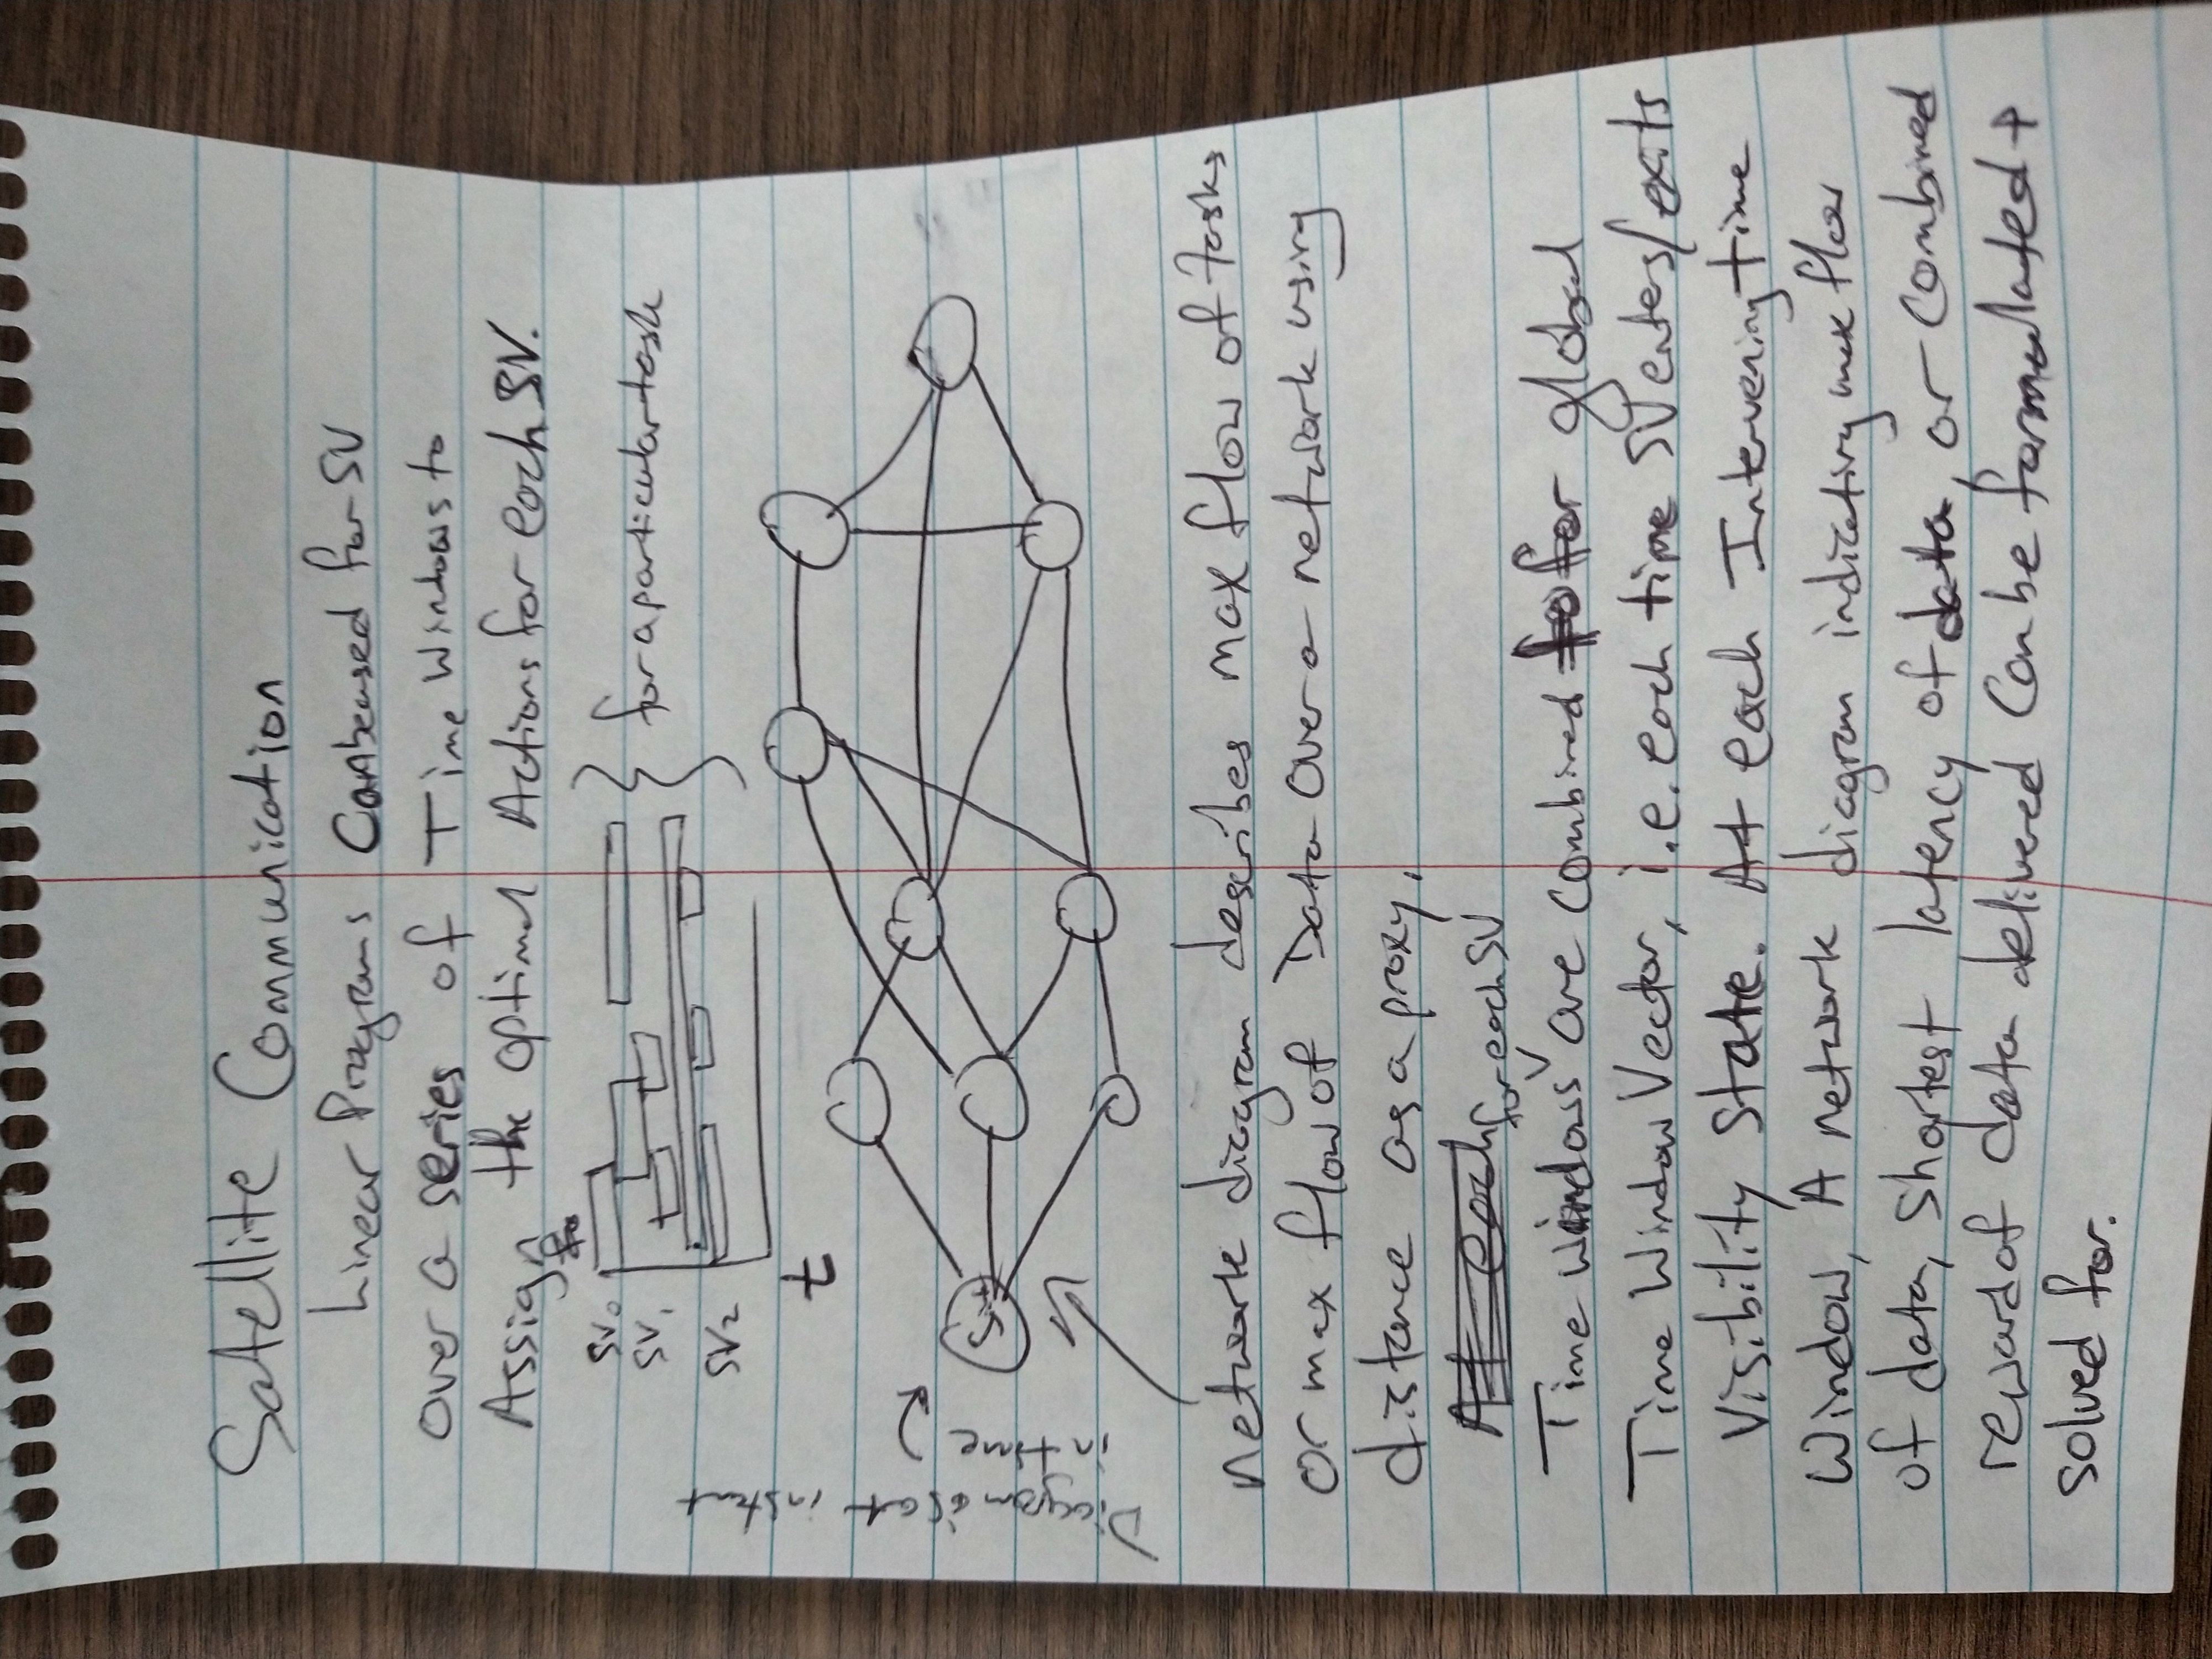 Satellite Communication
Linear Programs Can be used for SV
over a series of Time Windows to
Assign the optimal Actions for each SV.
SV0
SV1
SV2
t
for a particular task
Diagram is at instant
in time
Network diagram describes max flow of tasks
or max flow of Data over a network using
distance as a proxy.
for each SV
Time windows are combined for global
Time Window Vector, i.e. each time SV enters/exits
Visibility State. At each Intervening time
Window, A network diagram indicating max flow
of data, shortest latency of data, or combined
reward of data delivered can be formulated +
solved for.